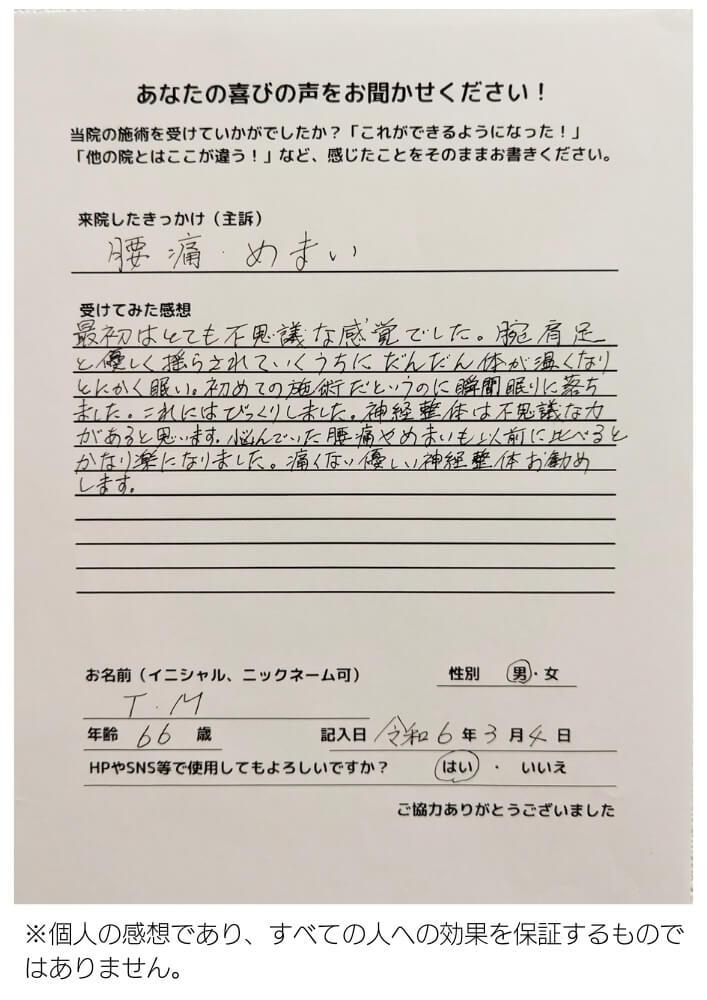 あなたの喜びの声をお聞かせください！
当院の施術を受けていかがでしたか？「これができるようになった！」
「他の院とはここが違う！」など、感じたことをそのままお書きください。
来院したきっかけ（主訴）
腰痛・めまい
受けてみた感想
最初はとても不思議な感覚でした。腕肩足
と優しく揺らされていくうちにだんだん体が温くなり
とにかく眠い。初めての施術だというのに瞬間眠りに落ち
ました。これにはびっくりしました。神経整体は不思議な力
があると思います。悩んでいた腰痛やめまいも以前に比べると
かなり楽になりました。痛くない優しい神経整体お勧め
します。
お名前（イニシャル、ニックネーム可） 性別 男・女
T.M
年齢 66 歳 記入日 令和6年3月4日
HPやSNS等で使用してもよろしいですか？ はい ・ いいえ
ご協力ありがとうございました
※個人の感想であり、すべての人への効果を保証するもので
はありません。